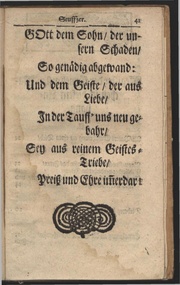 Seuffzer. 41
GOtt dem Sohn/ der un-
sern Schaden/
So genädig abgewand:
Und dem Geiste/ der aus
Liebe/
In der Tauff uns neu ge-
bahr/
Sey aus reinem Geistes-
Triebe/
Preiß und Ehre im̃erdar!